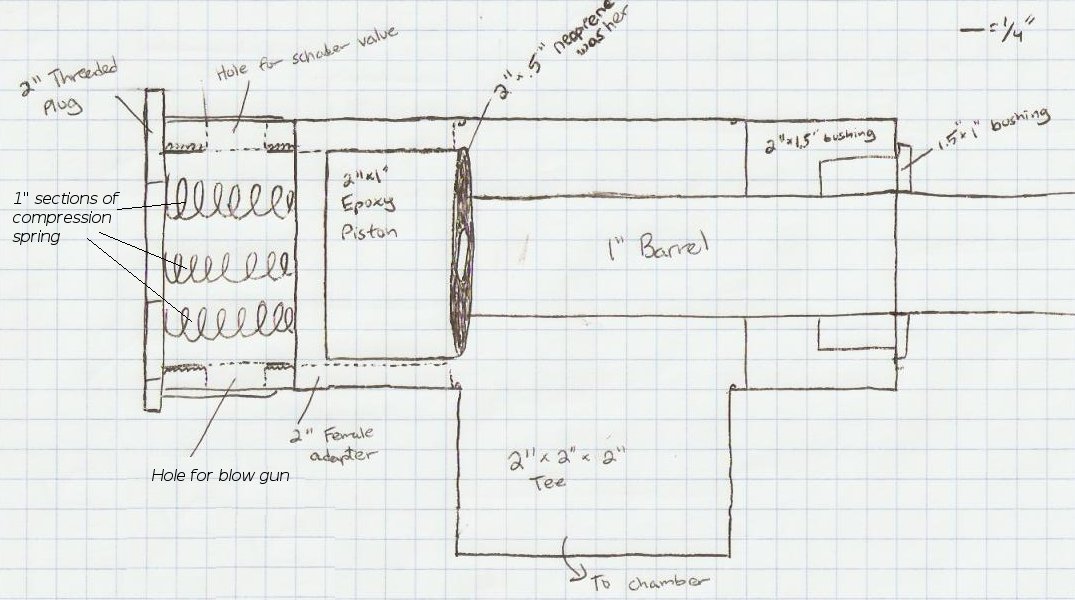 2" Threaded
Plug
Hole for schader value
2" x .5" neoprene
washer
— = 1/4"
2"x1.5" bushing
1.5"x1" bushing
1" sections of
compression
spring
2"x1"
Epoxy
Piston
1" Barrel
2" Female
adapter
Hole for blow gun
2" x 2" x 2"
Tee
To chamber